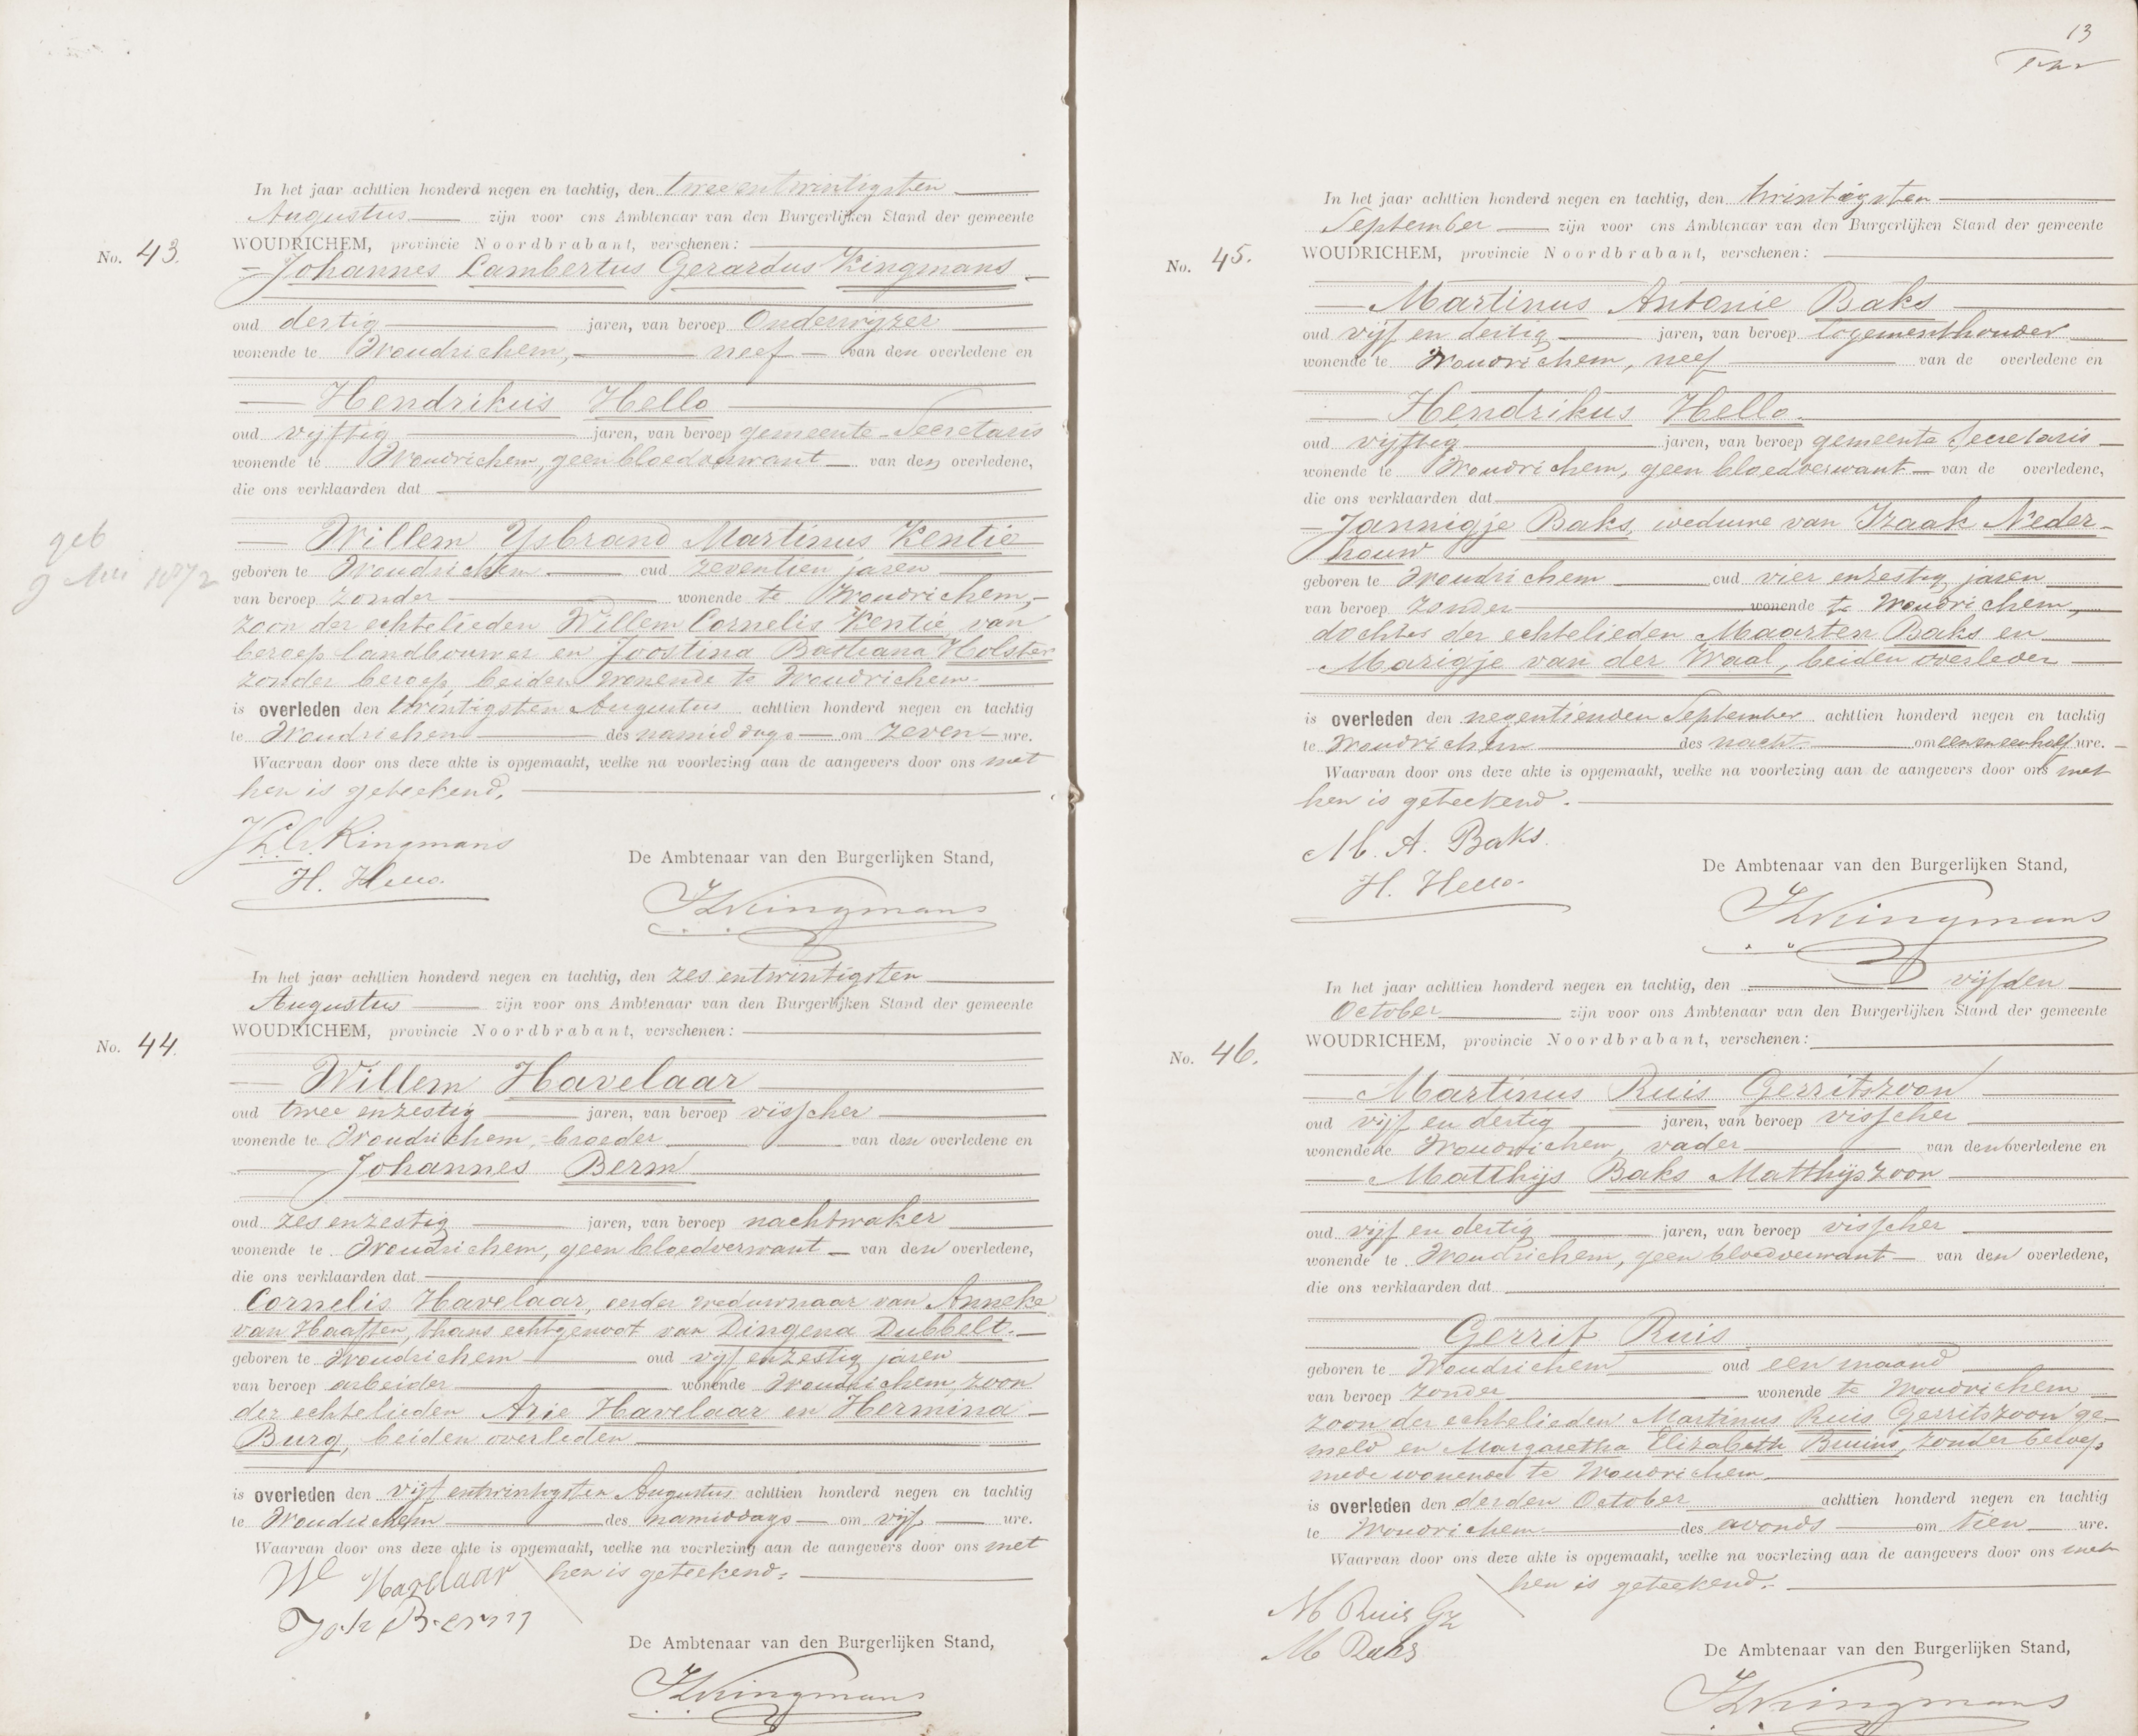 In het jaar achttien honderd negen en tachtig, den tweeentwintigsten
Augustus zijn voor ons Ambtenaar van den Burgerlijken Stand der gemeente
No. 43. WOUDRICHEM, provincie Noordbrabant, verschenen:
Johannes Lambertus Gerardus Kingmans
oud dertig jaren, van beroep Onderwijzer
wonende te Woudrichem, neef van den overledene en
Hendrikus Hello
oud vijftig jaren, van beroep gemeente-Secretaris
wonende te Woudrichem, geen bloedverwant van den overledene,
die ons verklaarden dat
Willem Ysbrand Martinus Kentie
geb
geboren te Woudrichem oud zeventien jaren
1872
van beroep zonder wonende te Woudrichem,
zoon der echtelieden Willem Cornelis Kentie, van
beroep landbouwer en Joostina Bastiana Holster
zonder beroep, beiden wonende te Woudrichem.
is overleden den twintigsten Augustus achttien honderd negen en tachtig
te Woudrichem des namiddags om zeven ure.
Waarvan door ons deze akte is opgemaakt, welke na voorlezing aan de aangevers door ons met
hen is geteekend.
Kingmans
H. Hello
De Ambtenaar van den Burgerlijken Stand,
Kingmans
In het jaar achttien honderd negen en tachtig, den zesentwintigsten
Augustus zijn voor ons Ambtenaar van den Burgerlijken Stand der gemeente
WOUDRICHEM, provincie Noordbrabant, verschenen:
No. 44.
Willem Havelaar
oud twee enzestig jaren, van beroep visscher
wonende te Woudrichem, broeder van den overledene en
Johannes Berm
oud zesenzestig jaren, van beroep nachtwaker
wonende te Woudrichem, geen bloedverwant van den overledene,
die ons verklaarden dat
Cornelis Havelaar, eerder weduwnaar van Anneke
van Haaften, thans echtgenoot van Dingena Dubbelt.
geboren te Woudrichem oud vijf enzestig jaren
van beroep arbeider wonende Woudrichem, zoon
der echtelieden Arie Havelaar en Hermina
Burg, beiden overleden
is overleden den vijf entwintigsten Augustus achttien honderd negen en tachtig
te Woudrichem des namiddags om vijf ure.
Waarvan door ons deze akte is opgemaakt, welke na voorlezing aan de aangevers door ons met
hen is geteekend.
W Havelaar
Joh Berm
De Ambtenaar van den Burgerlijken Stand,
Kingmans
13
In het jaar achttien honderd negen en tachtig, den twintigsten
September zijn voor ons Ambtenaar van den Burgerlijken Stand der gemeente
No. 45. WOUDRICHEM, provincie Noordbrabant, verschenen:
Martinus Antonie Baks
oud vijf en dertig jaren, van beroep logementhouder
wonende te Woudrichem, neef van de overledene en
Hendrikus Hello.
oud vijftig jaren, van beroep gemeente Secretaris
wonende te Woudrichem, geen bloedverwant van de overledene,
die ons verklaarden dat
Jannigje Baks, weduwe van Izaak Neder-
houw
geboren te Woudrichem oud vier enzestig jaren
van beroep zonder wonende te Woudrichem,
dochter der echtelieden Maarten Baks en
Marigje van der Waal, beiden overleden
is overleden den negentienden September achttien honderd negen en tachtig
te Woudrichem des nacht om eeneneenhalf ure.
Waarvan door ons deze akte is opgemaakt, welke na voorlezing aan de aangevers door ons met
hen is geteekend.
M. A. Baks.
H. Hello.
De Ambtenaar van den Burgerlijken Stand,
Kingmans
In het jaar achttien honderd negen en tachtig, den vijfden
October zijn voor ons Ambtenaar van den Burgerlijken Stand der gemeente
WOUDRICHEM, provincie Noordbrabant, verschenen:
No. 46.
Martinus Ruis Gerritszoon
oud vijf en dertig jaren, van beroep visscher
wonende te Woudrichem, vader van den overledene en
Matthijs Baks Matthijszoon
oud vijf en dertig jaren, van beroep visscher
wonende te Woudrichem, geen bloedverwant van den overledene,
die ons verklaarden dat
Gerrit Ruis
geboren te Woudrichem oud een maand
van beroep zonder wonende te Woudrichem
zoon der echtelieden Martinus Ruis Gerritszoon ge-
meld en Margaretha Elizabeth Bruins, zonder beroep
mede wonende te Woudrichem
is overleden den derden October achttien honderd negen en tachtig
te Woudrichem des avonds om tien ure.
Waarvan door ons deze akte is opgemaakt, welke na voorlezing aan de aangevers door ons met
hen is geteekend.
M Ruis Gz
M Baks
De Ambtenaar van den Burgerlijken Stand,
Kingmans